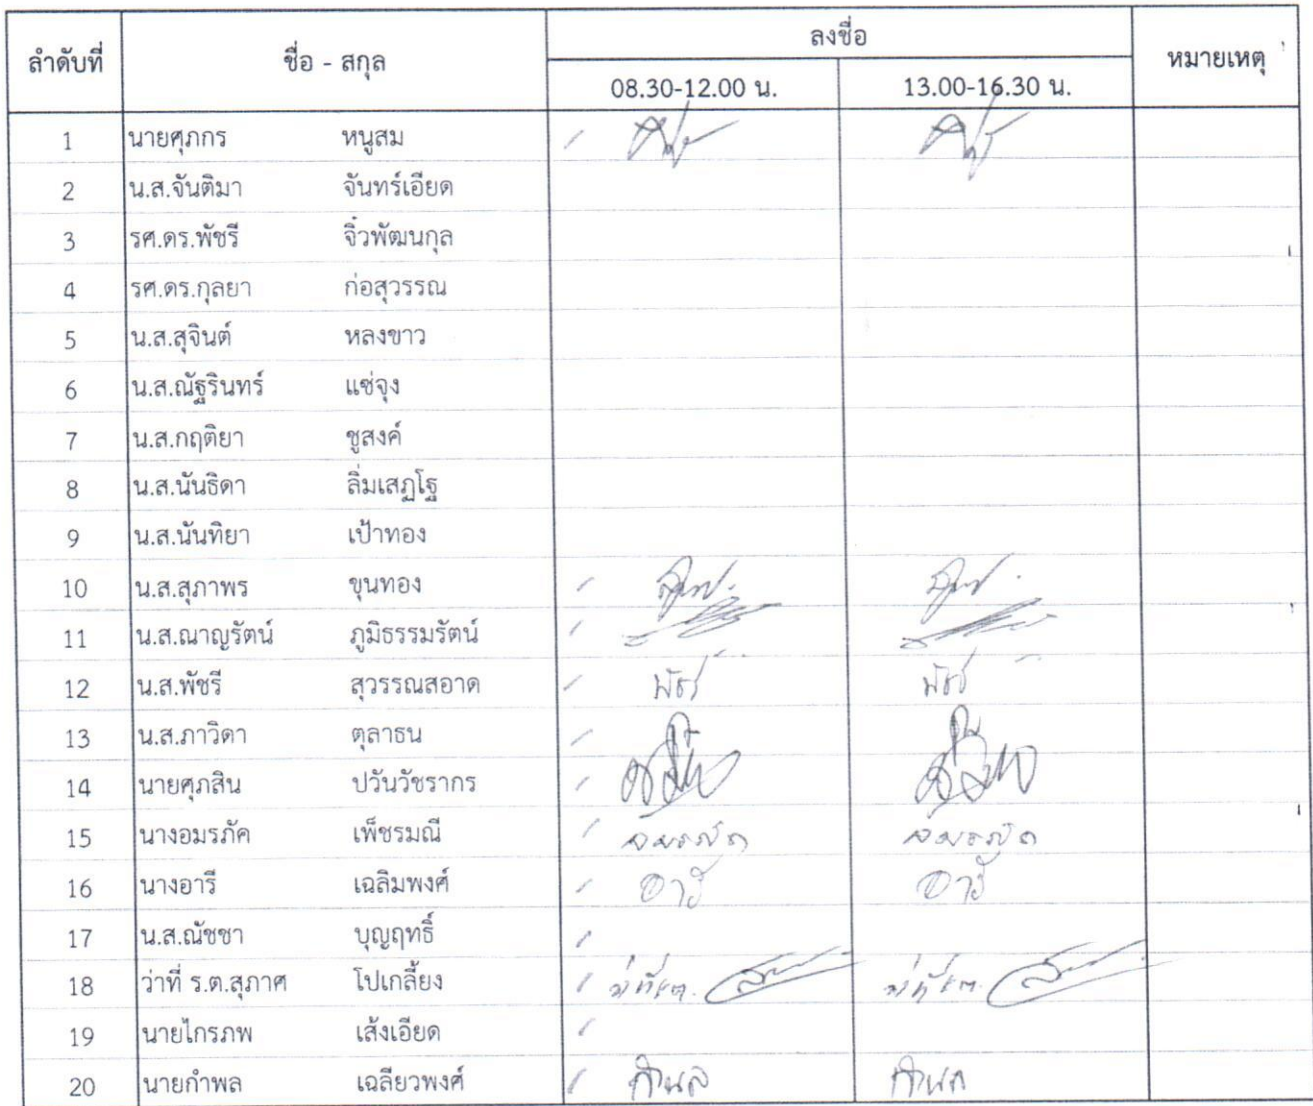 ลำดับที่ ชื่อ - สกุล ลงชื่อ หมายเหตุ
08.30-12.00 น. 13.00-16.30 น.
1 นายศุภกร หนูสม
2 น.ส.จันติมา จันทร์เอียด
3 รศ.ดร.พัชรี จิ๋วพัฒนกุล
4 รศ.ดร.กุลยา ก่อสุวรรณ
5 น.ส.สุจินต์ หลงขาว
6 น.ส.ณัฐรินทร์ แซ่จุง
7 น.ส.กฤติยา ชูสงค์
8 น.ส.นันธิดา ลิ่มเสฏโฐ
9 น.ส.นันทิยา เป้าทอง
10 น.ส.สุภาพร ขุนทอง
11 น.ส.ณาญรัตน์ ภูมิธรรมรัตน์
12 น.ส.พัชรี สุวรรณสอาด พัชรี พัชรี
13 น.ส.ภาวิดา ตุลาธน
14 นายศุภสิน ปวันวัชรากร
15 นางอมรภัค เพ็ชรมณี อมรภัค อมรภัค
16 นางอารี เฉลิมพงศ์ อารี อารี
17 น.ส.ณัชชา บุญฤทธิ์
18 ว่าที่ ร.ต.สุภาศ โปเกลี้ยง ว่าที่ ร.ต. ว่าที่ ร.ต.
19 นายไกรภพ เส้งเอียด
20 นายกำพล เฉลียวพงศ์ กำพล กำพล